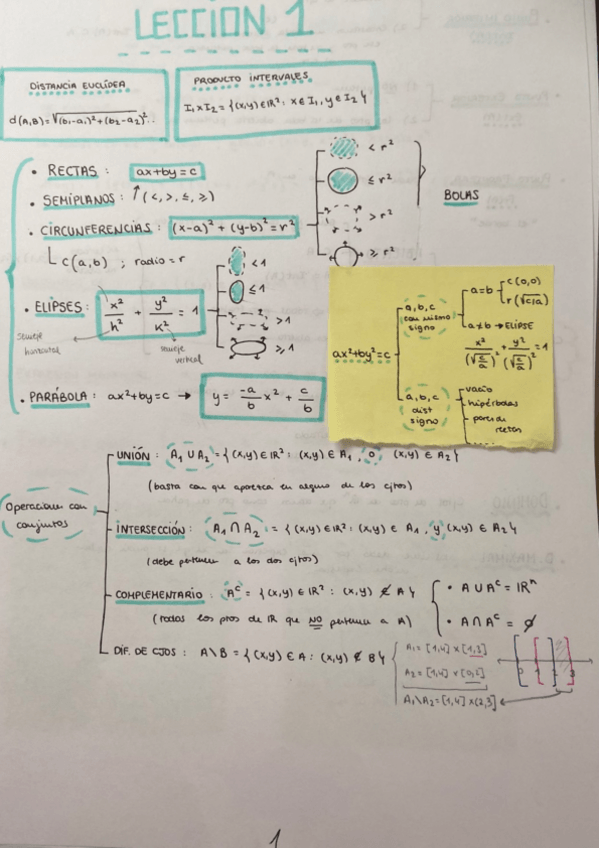 LECCION 1
DISTANCIA EUCLÍDEA
d(A,B) = √(b₁-a₁)² + (b₂-a₂)²
PRODUCTO INTERVALES
I₁ x I₂ = {(x,y) ∈ IR² : x ∈ I₁, y ∈ I₂}
• RECTAS: ax+by = c
• SEMIPLANOS: ↑ (<, >, ≤, ≥)
• CIRCUNFERENCIAS: (x-a)² + (y-b)² = r²
C(a,b) ; radio = r
< r²
≤ r²
> r²
≥ r²
BOLAS
• ELIPSES: x²/h² + y²/k² = 1
semieje horizontal
semieje vertical
< 1
≤ 1
> 1
≥ 1
• PARÁBOLA: ax²+by = c → y = -a/b x² + c/b
ax²+by² = c
a, b, c con mismo signo
a = b
C(0,0)
r(√c/a)
a ≠ b → ELIPSE
x²/(√c/a)² + y²/(√c/a)² = 1
a, b, c dist signo
vacío
hipérbolas
par de rectas
.....
Operaciones con conjuntos
UNIÓN: A₁ ∪ A₂ = {(x,y) ∈ IR² : (x,y) ∈ A₁, o (x,y) ∈ A₂}
(basta con que aparezca en alguno de los cjtos)
INTERSECCIÓN: A₁ ∩ A₂ = {(x,y) ∈ IR² : (x,y) ∈ A₁, y (x,y) ∈ A₂}
(debe pertenecer a los dos cjtos)
COMPLEMENTARIO: Aᶜ = {(x,y) ∈ IR² : (x,y) ∉ A}
(todos los ptos de IR que NO pertenece a A)
• A ∪ Aᶜ = IRⁿ
• A ∩ Aᶜ = ∅
DIF. DE CJOS: A\B = {(x,y) ∈ A : (x,y) ∉ B}
A₁ = [1,4] x [1,3]
A₂ = [1,4] x [0,2]
A₁\A₂ = [1,4] x (2,3]
0 1 2 3
1